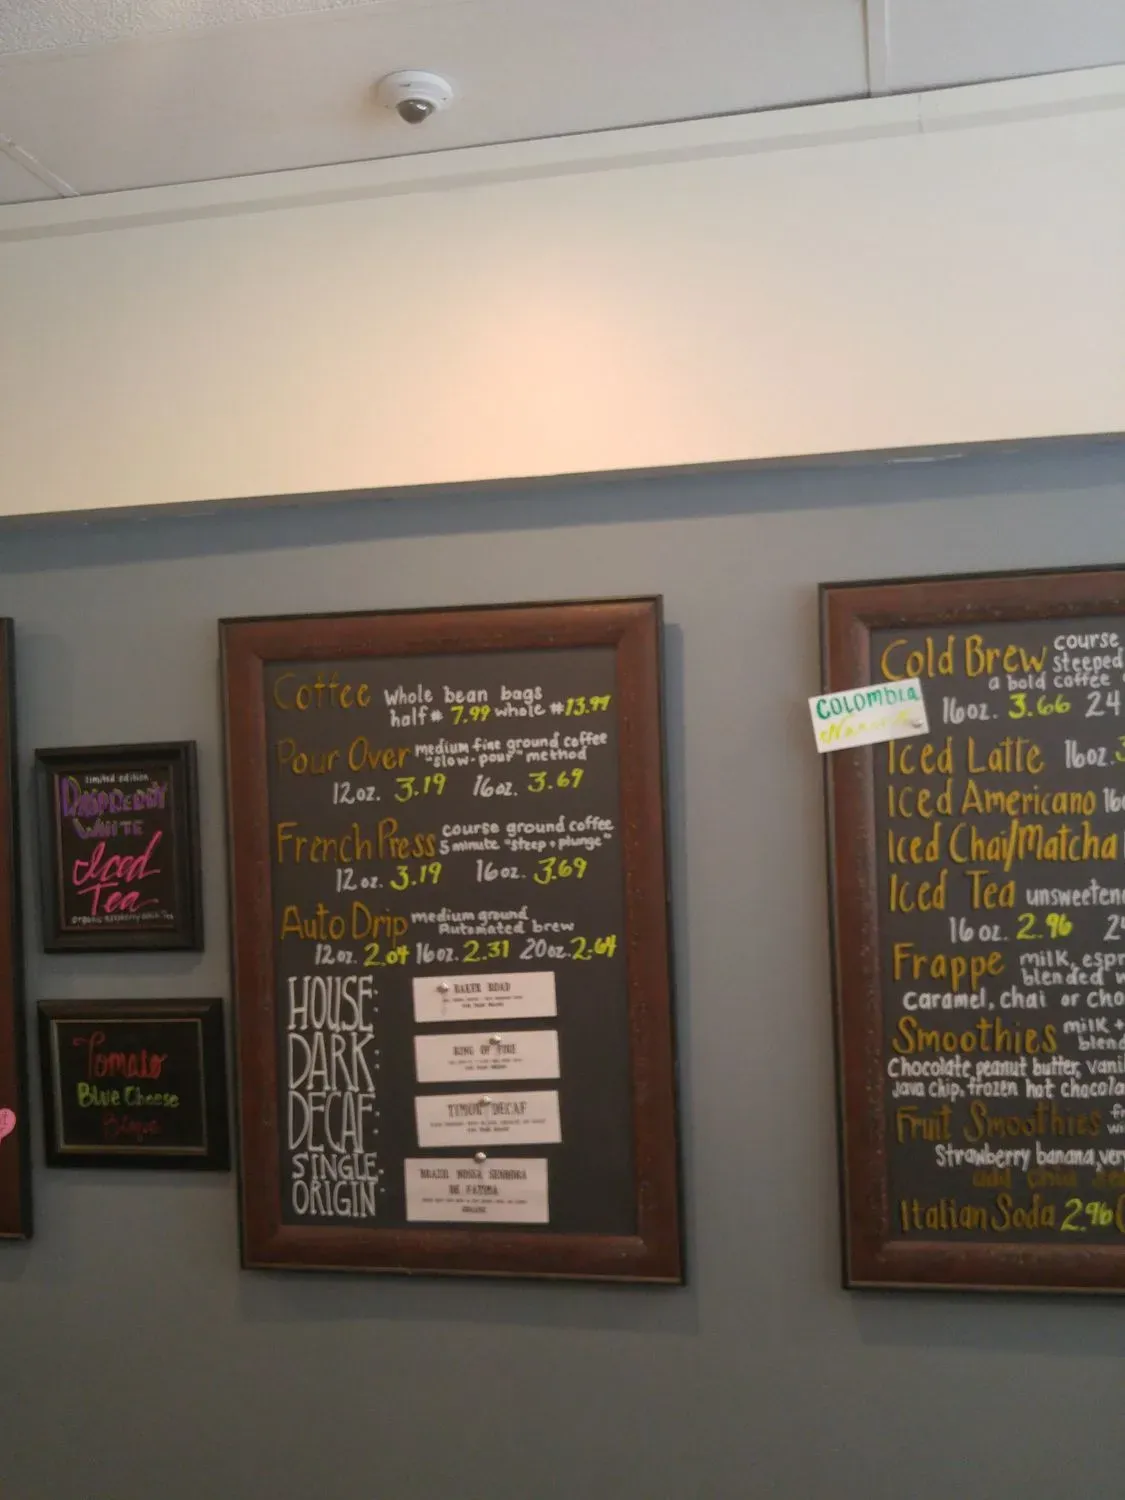 limited edition
RASPBERRY
WHITE
Iced
Tea
Tomato
Blue Cheese
Bisque
Coffee whole bean bags
half # 7.99 whole # 13.99
Pour Over medium fine ground coffee
"slow-pour" method
12oz. 3.19 16oz. 3.69
French Press course ground coffee
5 minute "steep + plunge"
12oz. 3.19 16oz. 3.69
Auto Drip medium ground
Automated brew
12oz. 2.04 16oz. 2.31 20oz. 2.64
HOUSE: BAKER ROAD
DARK: RING OF FIRE
DECAF: TIMOR DECAF
SINGLE BRAZIL NOSSA SENHORA
ORIGIN: DE FATIMA
Cold Brew course
steeped
a bold coffee
COLOMBIA
16oz. 3.66 24
Iced Latte 16oz.
Iced Americano
Iced Chai/Matcha
Iced Tea
16oz. 2.96
Frappe milk,
blended
Caramel, chai or
Smoothies milk +
Chocolate peanut butter,
Java chip, frozen hot
Fruit Smoothies
Strawberry banana,
Italian Soda 2.96